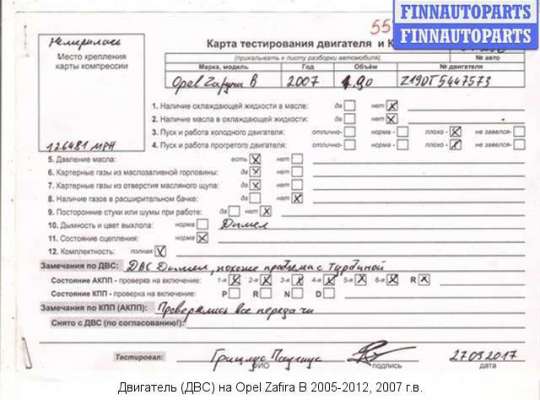 FINNAUTOPARTS
FINNAUTOPARTS
55
Карта тестирования двигателя и К
(прикалывать к листу разборки автомобиля)
№ авто
Место крепления
карты компрессии
Марка, модель Год Объём № двигателя
Opel Zafira B 2007 1.90 Z19DT5447573
1. Наличие охлаждающей жидкости в масле: да нет X
2. Наличие масла в охлаждающей жидкости: да нет X
3. Пуск и работа холодного двигателя: отлично- норма - плохо - X не завелся-
126481 МРН
4. Пуск и работа прогретого двигателя: отлично- норма - плохо - X не завелся-
5. Давление масла: есть X нет
6. Картерные газы из маслозаливной горловины: да X нет
7. Картерные газы из отверстия масляного щупа: да X нет
8. Наличие газов в расширительном бачке: да нет X
9. Посторонние стуки или шумы при работе: да нет X
10. Дымность и цвет выхлопа: норма Дымел
11. Состояние сцепления: норма X
12. Комплектность: полная V
Замечания по ДВС: ДВС Дымел, похоже проблема с Турбиной
Состояние АКПП - проверка на включение: 1-я X 2-я X 3-я X 4-я X 5-я X 6-я X R X
Состояние КПП - проверка на включение: P R N D
Замечания по КПП (АКПП): Проверялись все передачи
Снято с ДВС (по согласованию!):
Тестировал: 27.09.2017
ФИО подпись дата
Двигатель (ДВС) на Opel Zafira B 2005-2012, 2007 г.в.